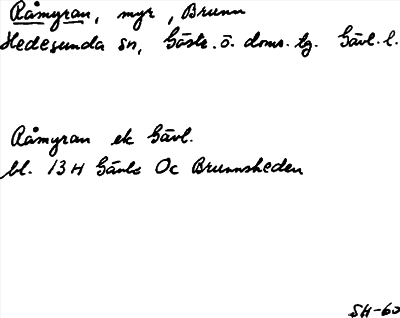 Råmyran, myr, Brunn
Hedesunda sn, Gästr. ö. doms. tg. Gävl. l.
Råmyran ek Gävl.
bl. 13 H Gävle Oc Brunnsheden
SH-60